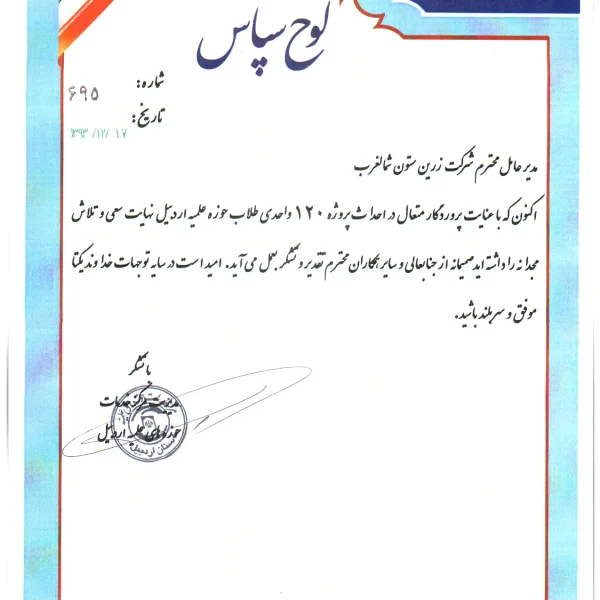 لوح سپاس
شماره: ۶۹۵
تاریخ: ۱۳۹۳/۱۲/۱۷
مدیر عامل محترم شرکت زرین ستون شمالغرب
اکنون که با عنایت پروردگار متعال در احداث پروژه ۱۲۰ واحدی طلاب حوزه علمیه اردبیل نهایت سعی و تلاش
مجدانه را داشته اید صمیمانه از جنابعالی و سایر همکاران محترم تقدیر و تشکر بعمل می آید. امید است در سایه توجهات خداوند یکتا
موفق و سربلند باشید.
با تشکر
مدیریت مرکز خدمات
حوزه های علمیه اردبیل